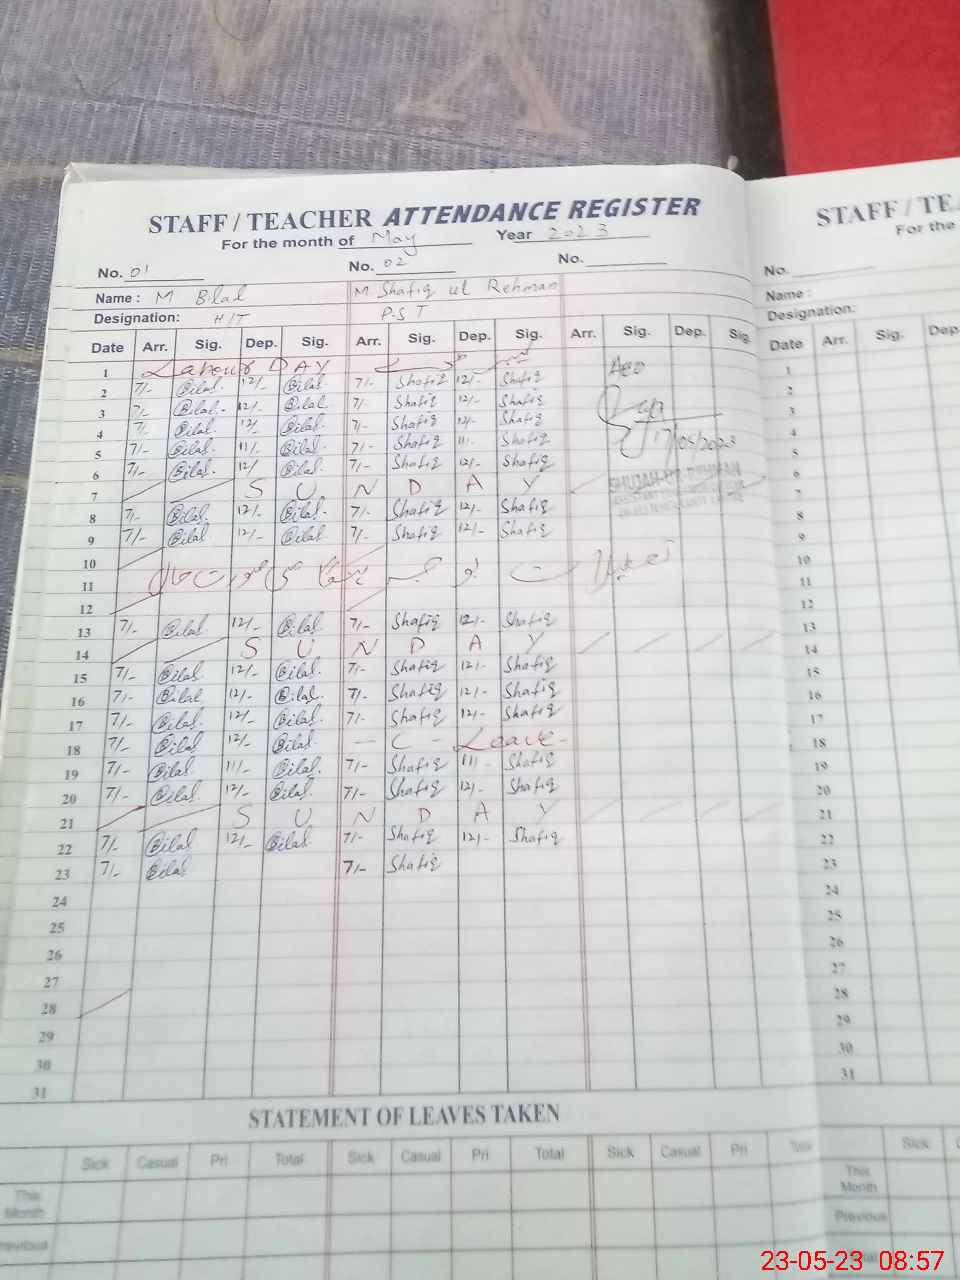 STAFF / TEACHER ATTENDANCE REGISTER
For the month of May Year 2023
No. 01 No. 02 No.
Name : M Bilal M. Shafiq ul Rehman
Designation: H/T P.S.T
Date Arr. Sig. Dep. Sig. Arr. Sig. Dep. Sig. Arr. Sig. Dep. Sig.
1 Labour DAY
2 7/- Bilal 12/- Bilal 7/- Shafiq 12/- Shafiq AEO
3 7/- Bilal 12/- Bilal 7/- Shafiq 12/- Shafiq
4 7/- Bilal 12/- Bilal 7/- Shafiq 12/- Shafiq
5 7/- Bilal 11/- Bilal 7/- Shafiq 11/- Shafiq 17/05/2023
6 7/- Bilal 12/ Bilal 7/- Shafiq 12/- Shafiq
7 S U N D A Y
8 7/- Bilal 12/- Bilal 7/- Shafiq 12/- Shafiq
9 7/- Bilal 12/- Bilal 7/- Shafiq 12/- Shafiq
10
11
12
13 7/- Bilal 12/- Bilal 7/- Shafiq 12/- Shafiq
14 S U N D A Y
15 7/- Bilal 12/- Bilal 7/- Shafiq 12/- Shafiq
16 7/- Bilal 12/- Bilal 7/- Shafiq 12/- Shafiq
17 7/- Bilal 12/- Bilal 7/- Shafiq 12/- Shafiq
18 7/- Bilal 12/- Bilal - C - Leave -
19 7/- Bilal 11/- Bilal 7/- Shafiq 11/- Shafiq
20 7/- Bilal 12/- Bilal 7/- Shafiq 12/- Shafiq
21 S U N D A Y
22 7/- Bilal 12/- Bilal 7/- Shafiq 12/- Shafiq
23 7/- Bilal 7/- Shafiq
24
25
26
27
28
29
30
31
STATEMENT OF LEAVES TAKEN
Sick Casual Pri Total Sick Casual Pri Total Sick Casual Pri Total
This Month
Previous
STAFF / TEA
For the
No.
Name :
Designation:
Date Arr. Sig. Dep
1
2
3
4
5
6
7
8
9
10
11
12
13
14
15
16
17
18
19
20
21
22
23
24
25
26
27
28
29
30
31
Sick
This Month
Previous
Total
23-05-23 08:57